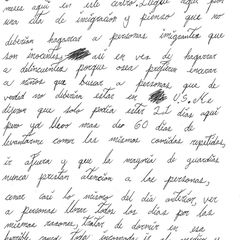 meces aquí en este centro. Llegué aquí por
una cita de inmigración y pienso que no
deberían agarrar a personas inmigrantes que
son inocentes así en vez de agarrar
a delincuentes porque osea prefieren encerrar
a niños que buscar a personas que de
verdad no deberían estar en U.S. Me
dijeron que solo podía estar 21 días aquí
pero ya llevo mas de 60 días de
levantarme comer las mismas comidas repetidas,
ir afuera y que la mayoría de guardias
nunca prestan atención a las personas,
cenar casi lo mismo del día anterior, ver
a personas llorar todos los días por las
mismas razones, tratar de dormir en esa
horrible cama. Toda